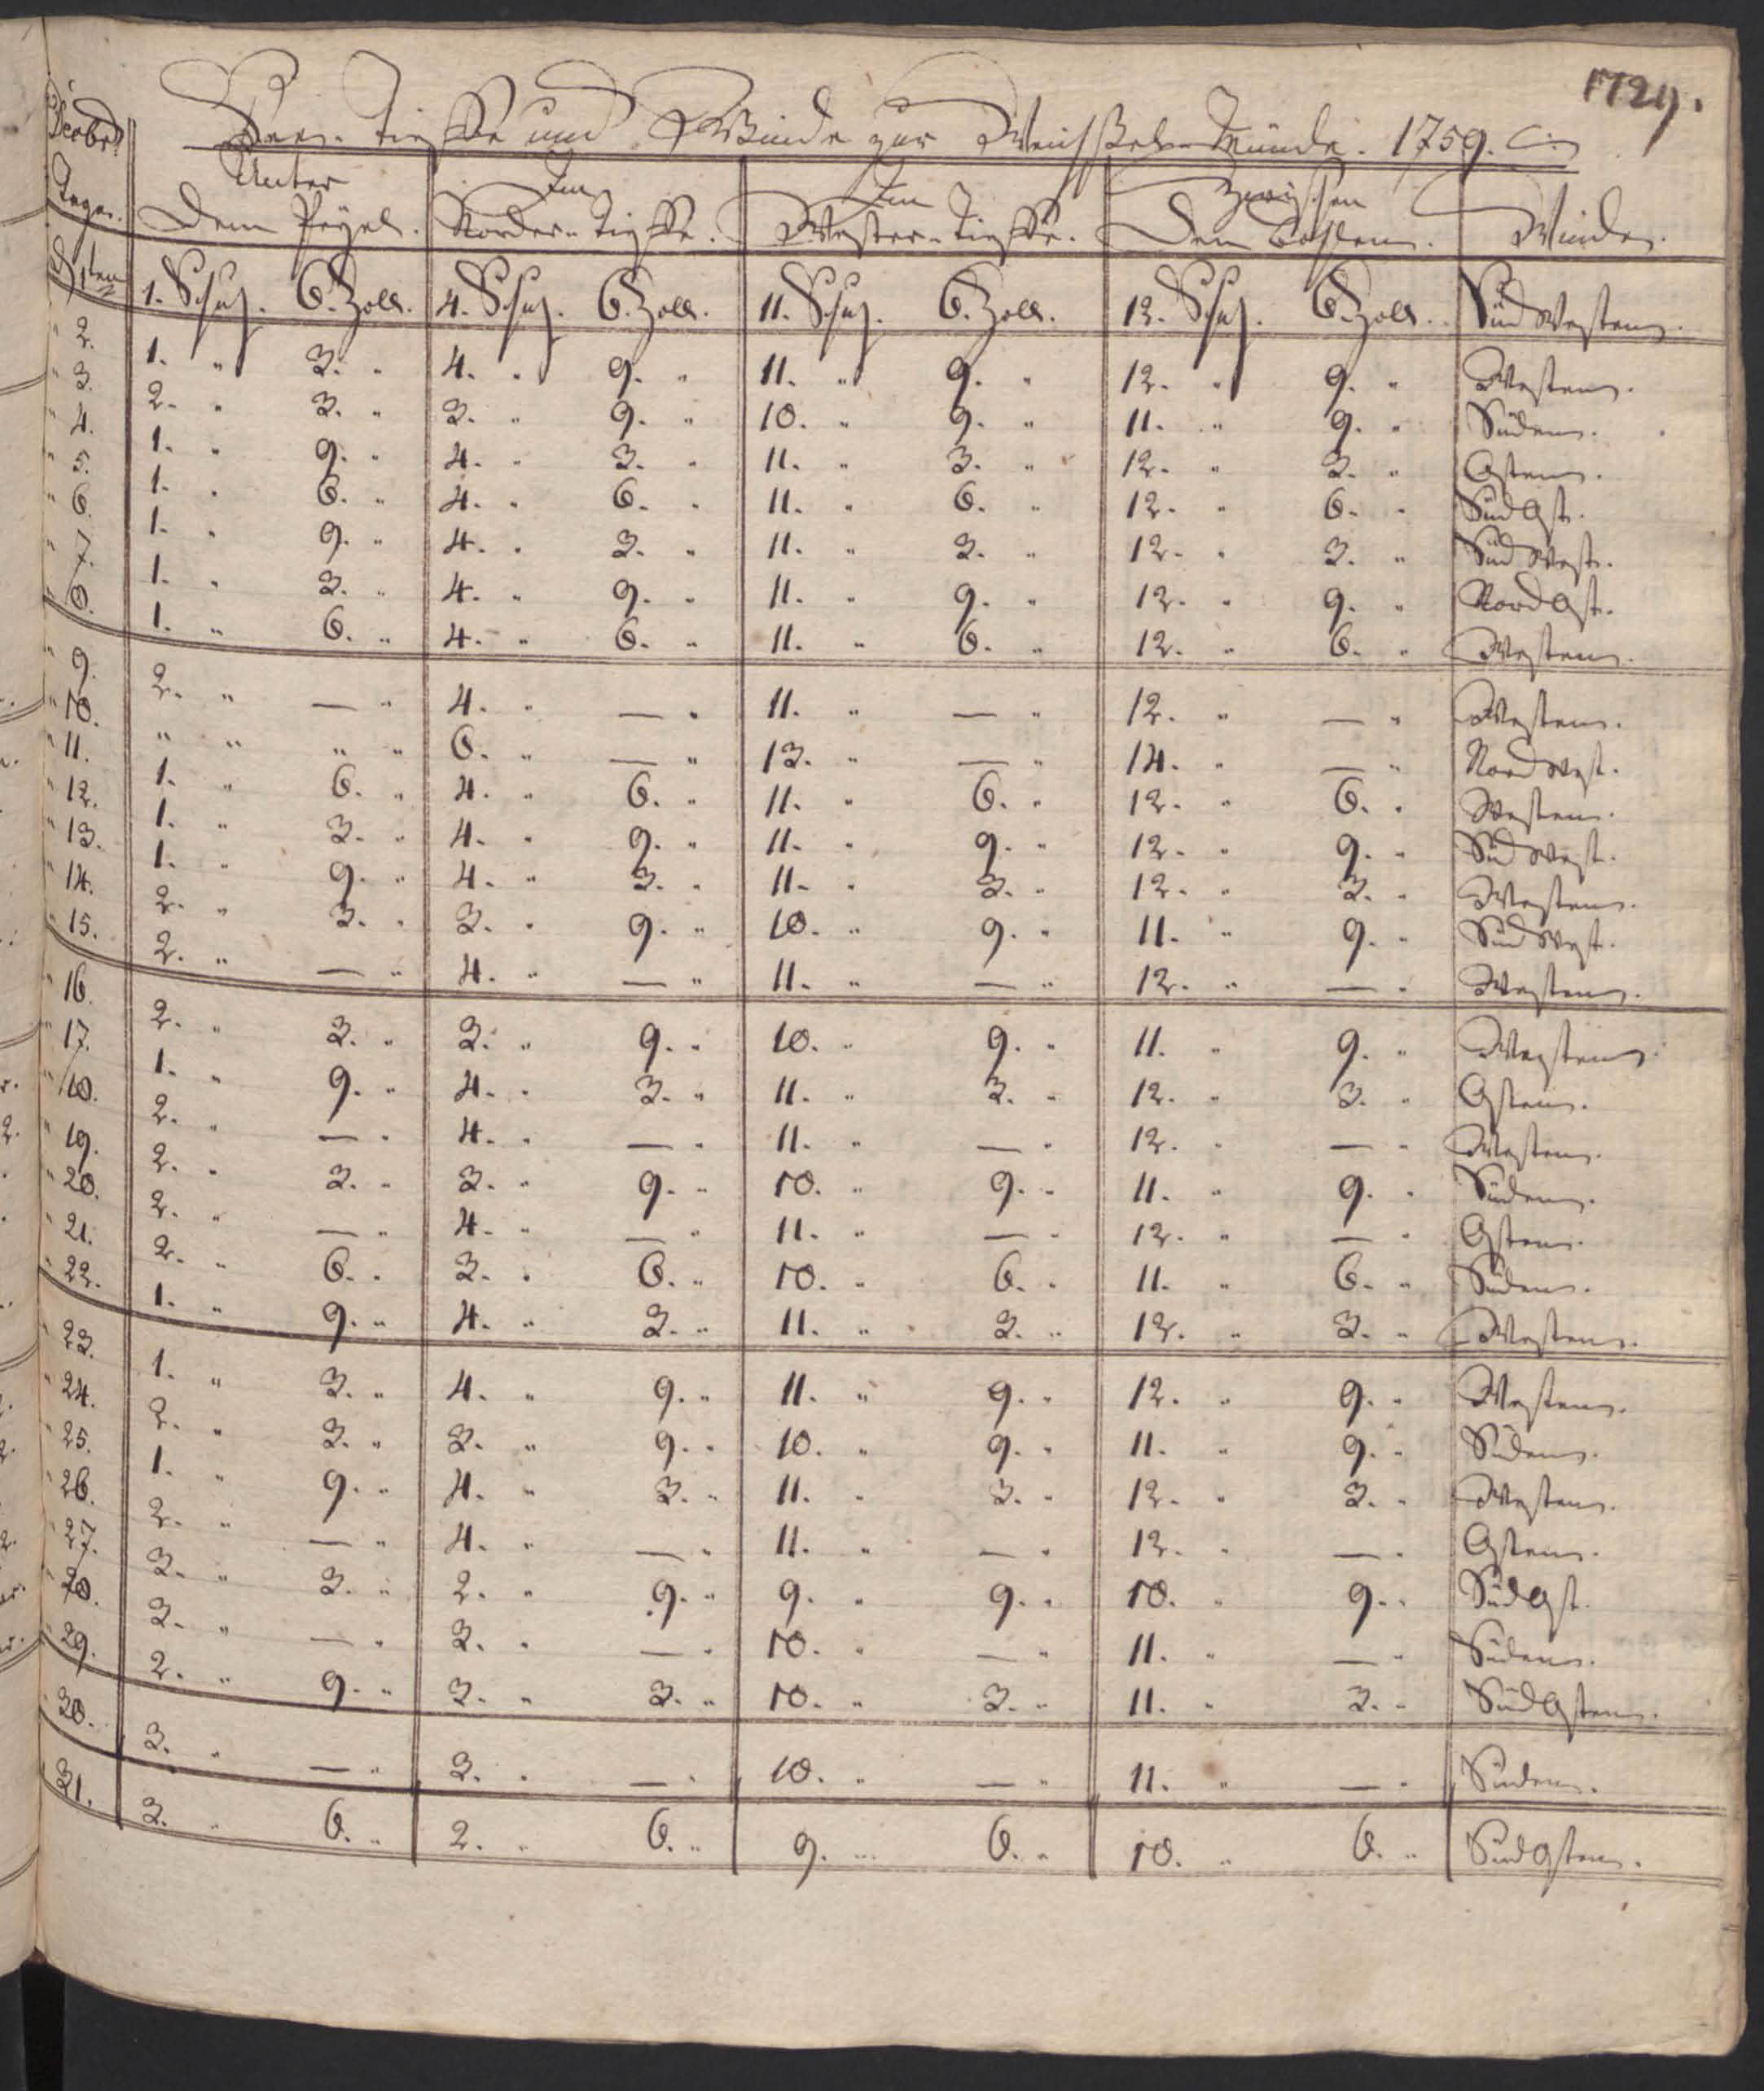 1729.
Decebr: See-Tieffe und Winde zur Weichßel-Münde. 1759.
Tage. Unter dem Peyel. Im Norder-Tieffe. Im Wester-Tieffe. Zwischen den Bohlen. Winde.
D 1ten 1. Schuh. 6. Zoll. 4. Schuh. 6. Zoll. 11. Schuh. 6. Zoll. 12. Schuh. 6. Zoll. Süd Westen.
" 2. 1. " 3. " 4. " 9. " 11. " 9. " 12. " 9. " Westen.
" 3. 2. " 3. " 3. " 9. " 10. " 9. " 11. " 9. " Süden.
" 4. 1. " 9. " 4. " 3. " 11. " 3. " 12. " 3. " Osten.
" 5. 1. " 6. " 4. " 6. " 11. " 6. " 12. " 6. " Süd Ost.
" 6. 1. " 9. " 4. " 3. " 11. " 3. " 12. " 3. " Süd West.
" 7. 1. " 3. " 4. " 9. " 11. " 9. " 12. " 9. " Nord Ost.
" 8. 1. " 6. " 4. " 6. " 11. " 6. " 12. " 6. " Westen.
" 9. 2. " — " 4. " — " 11. " — " 12. " — " Westen.
" 10. " " " " 6. " — " 13. " — " 14. " — " Nord West.
" 11. 1. " 6. " 4. " 6. " 11. " 6. " 12. " 6. " Westen.
" 12. 1. " 3. " 4. " 9. " 11. " 9. " 12. " 9. " Süd West.
" 13. 1. " 9. " 4. " 3. " 11. " 3. " 12. " 3. " Westen.
" 14. 2. " 3. " 3. " 9. " 10. " 9. " 11. " 9. " Süd West.
" 15. 2. " — " 4. " — " 11. " — " 12. " — " Westen.
" 16. 2. " 3. " 3. " 9. " 10. " 9. " 11. " 9. " Westen.
" 17. 1. " 9. " 4. " 3. " 11. " 3. " 12. " 3. " Osten.
" 18. 2. " — " 4. " — " 11. " — " 12. " — " Westen.
" 19. 2. " 3. " 3. " 9. " 10. " 9. " 11. " 9. " Süden.
" 20. 2. " — " 4. " — " 11. " — " 12. " — " Osten.
" 21. 2. " 6. " 3. " 6. " 10. " 6. " 11. " 6. " Süden.
" 22. 1. " 9. " 4. " 3. " 11. " 3. " 12. " 3. " Westen.
" 23. 1. " 3. " 4. " 9. " 11. " 9. " 12. " 9. " Westen.
" 24. 2. " 3. " 3. " 9. " 10. " 9. " 11. " 9. " Süden.
" 25. 1. " 9. " 4. " 3. " 11. " 3. " 12. " 3. " Westen.
" 26. 2. " — " 4. " — " 11. " — " 12. " — " Osten.
" 27. 3. " 3. " 2. " 9. " 9. " 9. " 10. " 9. " Süd Ost.
" 28. 3. " — " 3. " — " 10. " — " 11. " — " Süden.
" 29. 2. " 9. " 3. " 3. " 10. " 3. " 11. " 3. " Süd Osten.
" 30. 3. " — " 3. " — " 10. " — " 11. " — " Süden.
" 31. 3. " 6. " 2. " 6. " 9. " 6. " 10. " 6. " Süd Osten.